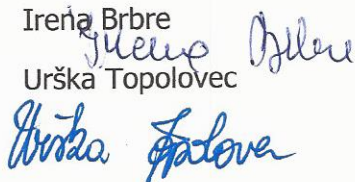 Irena Brbre
Irena Brbre
Urška Topolovec
Urška Topolovec